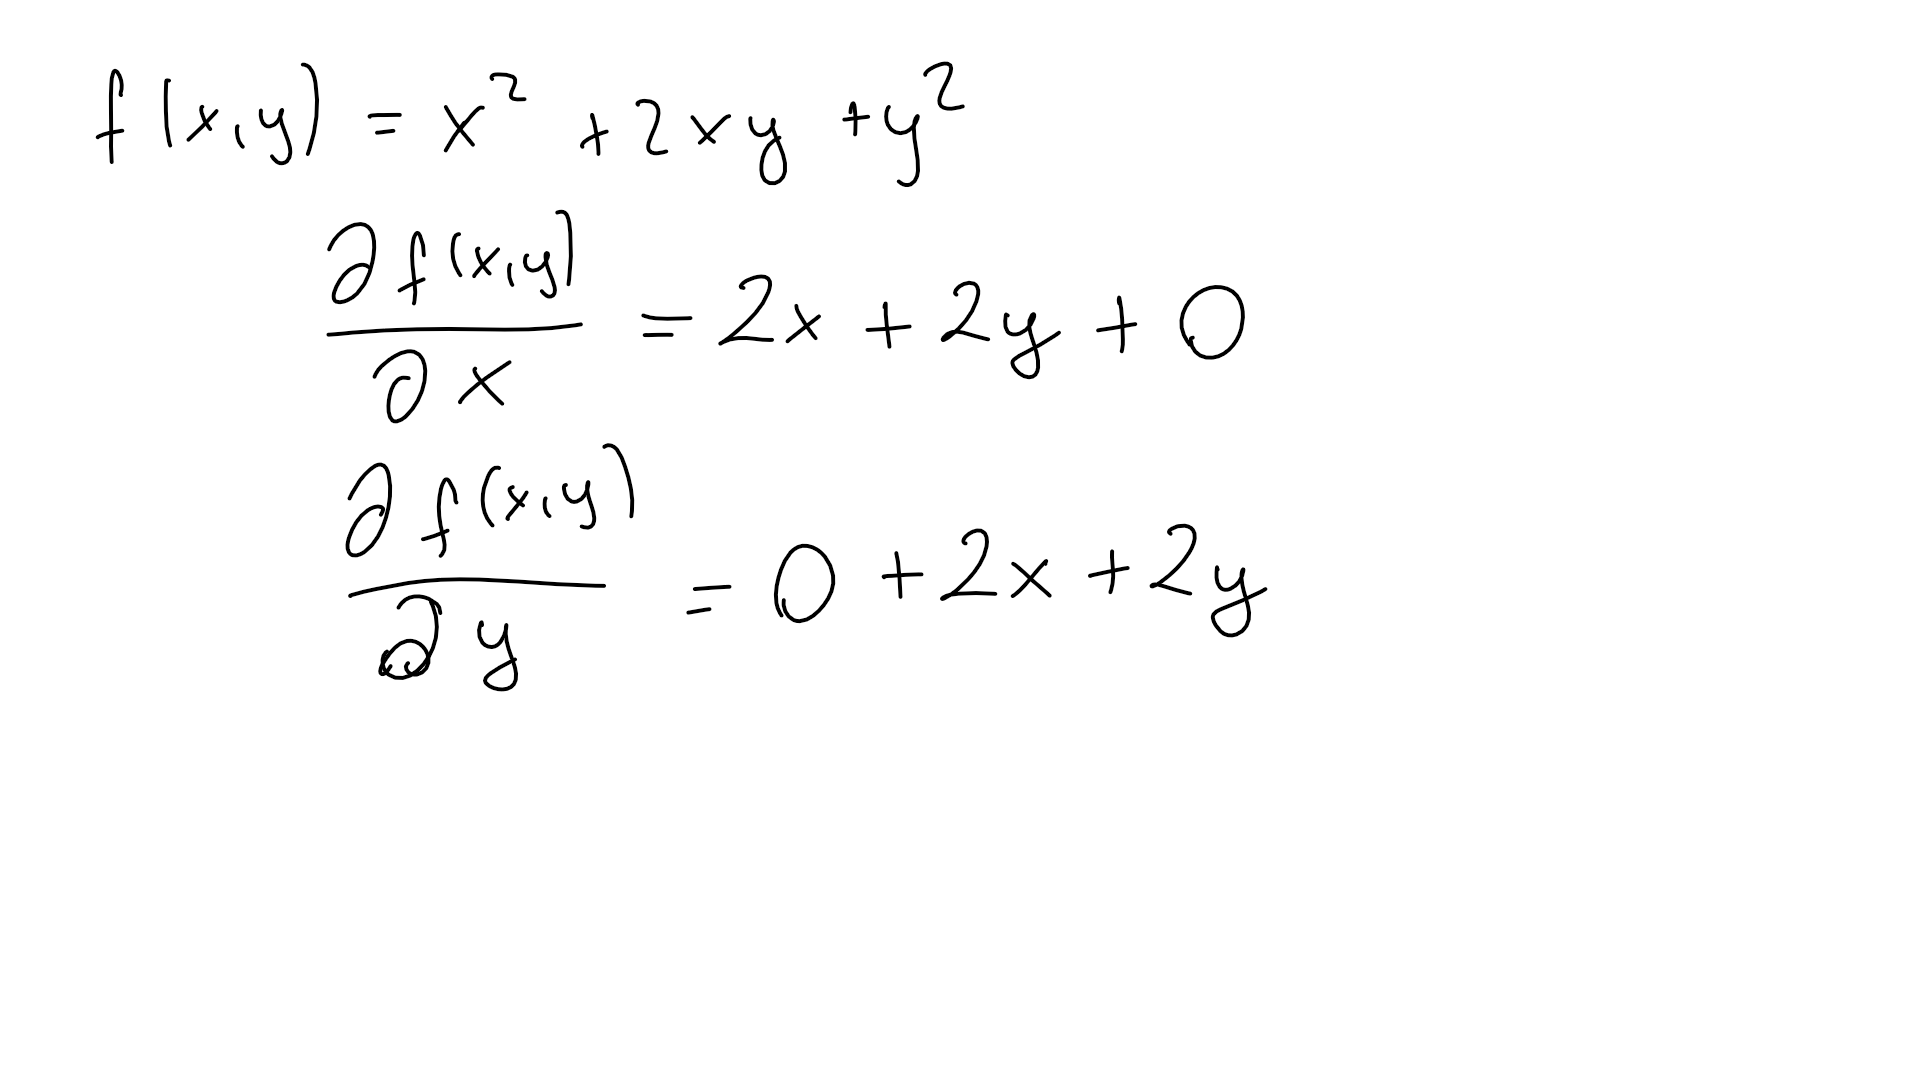 f(x,y) = x² + 2xy + y²
∂f(x,y)/∂x = 2x + 2y + 0
∂f(x,y)/∂y = 0 + 2x + 2y